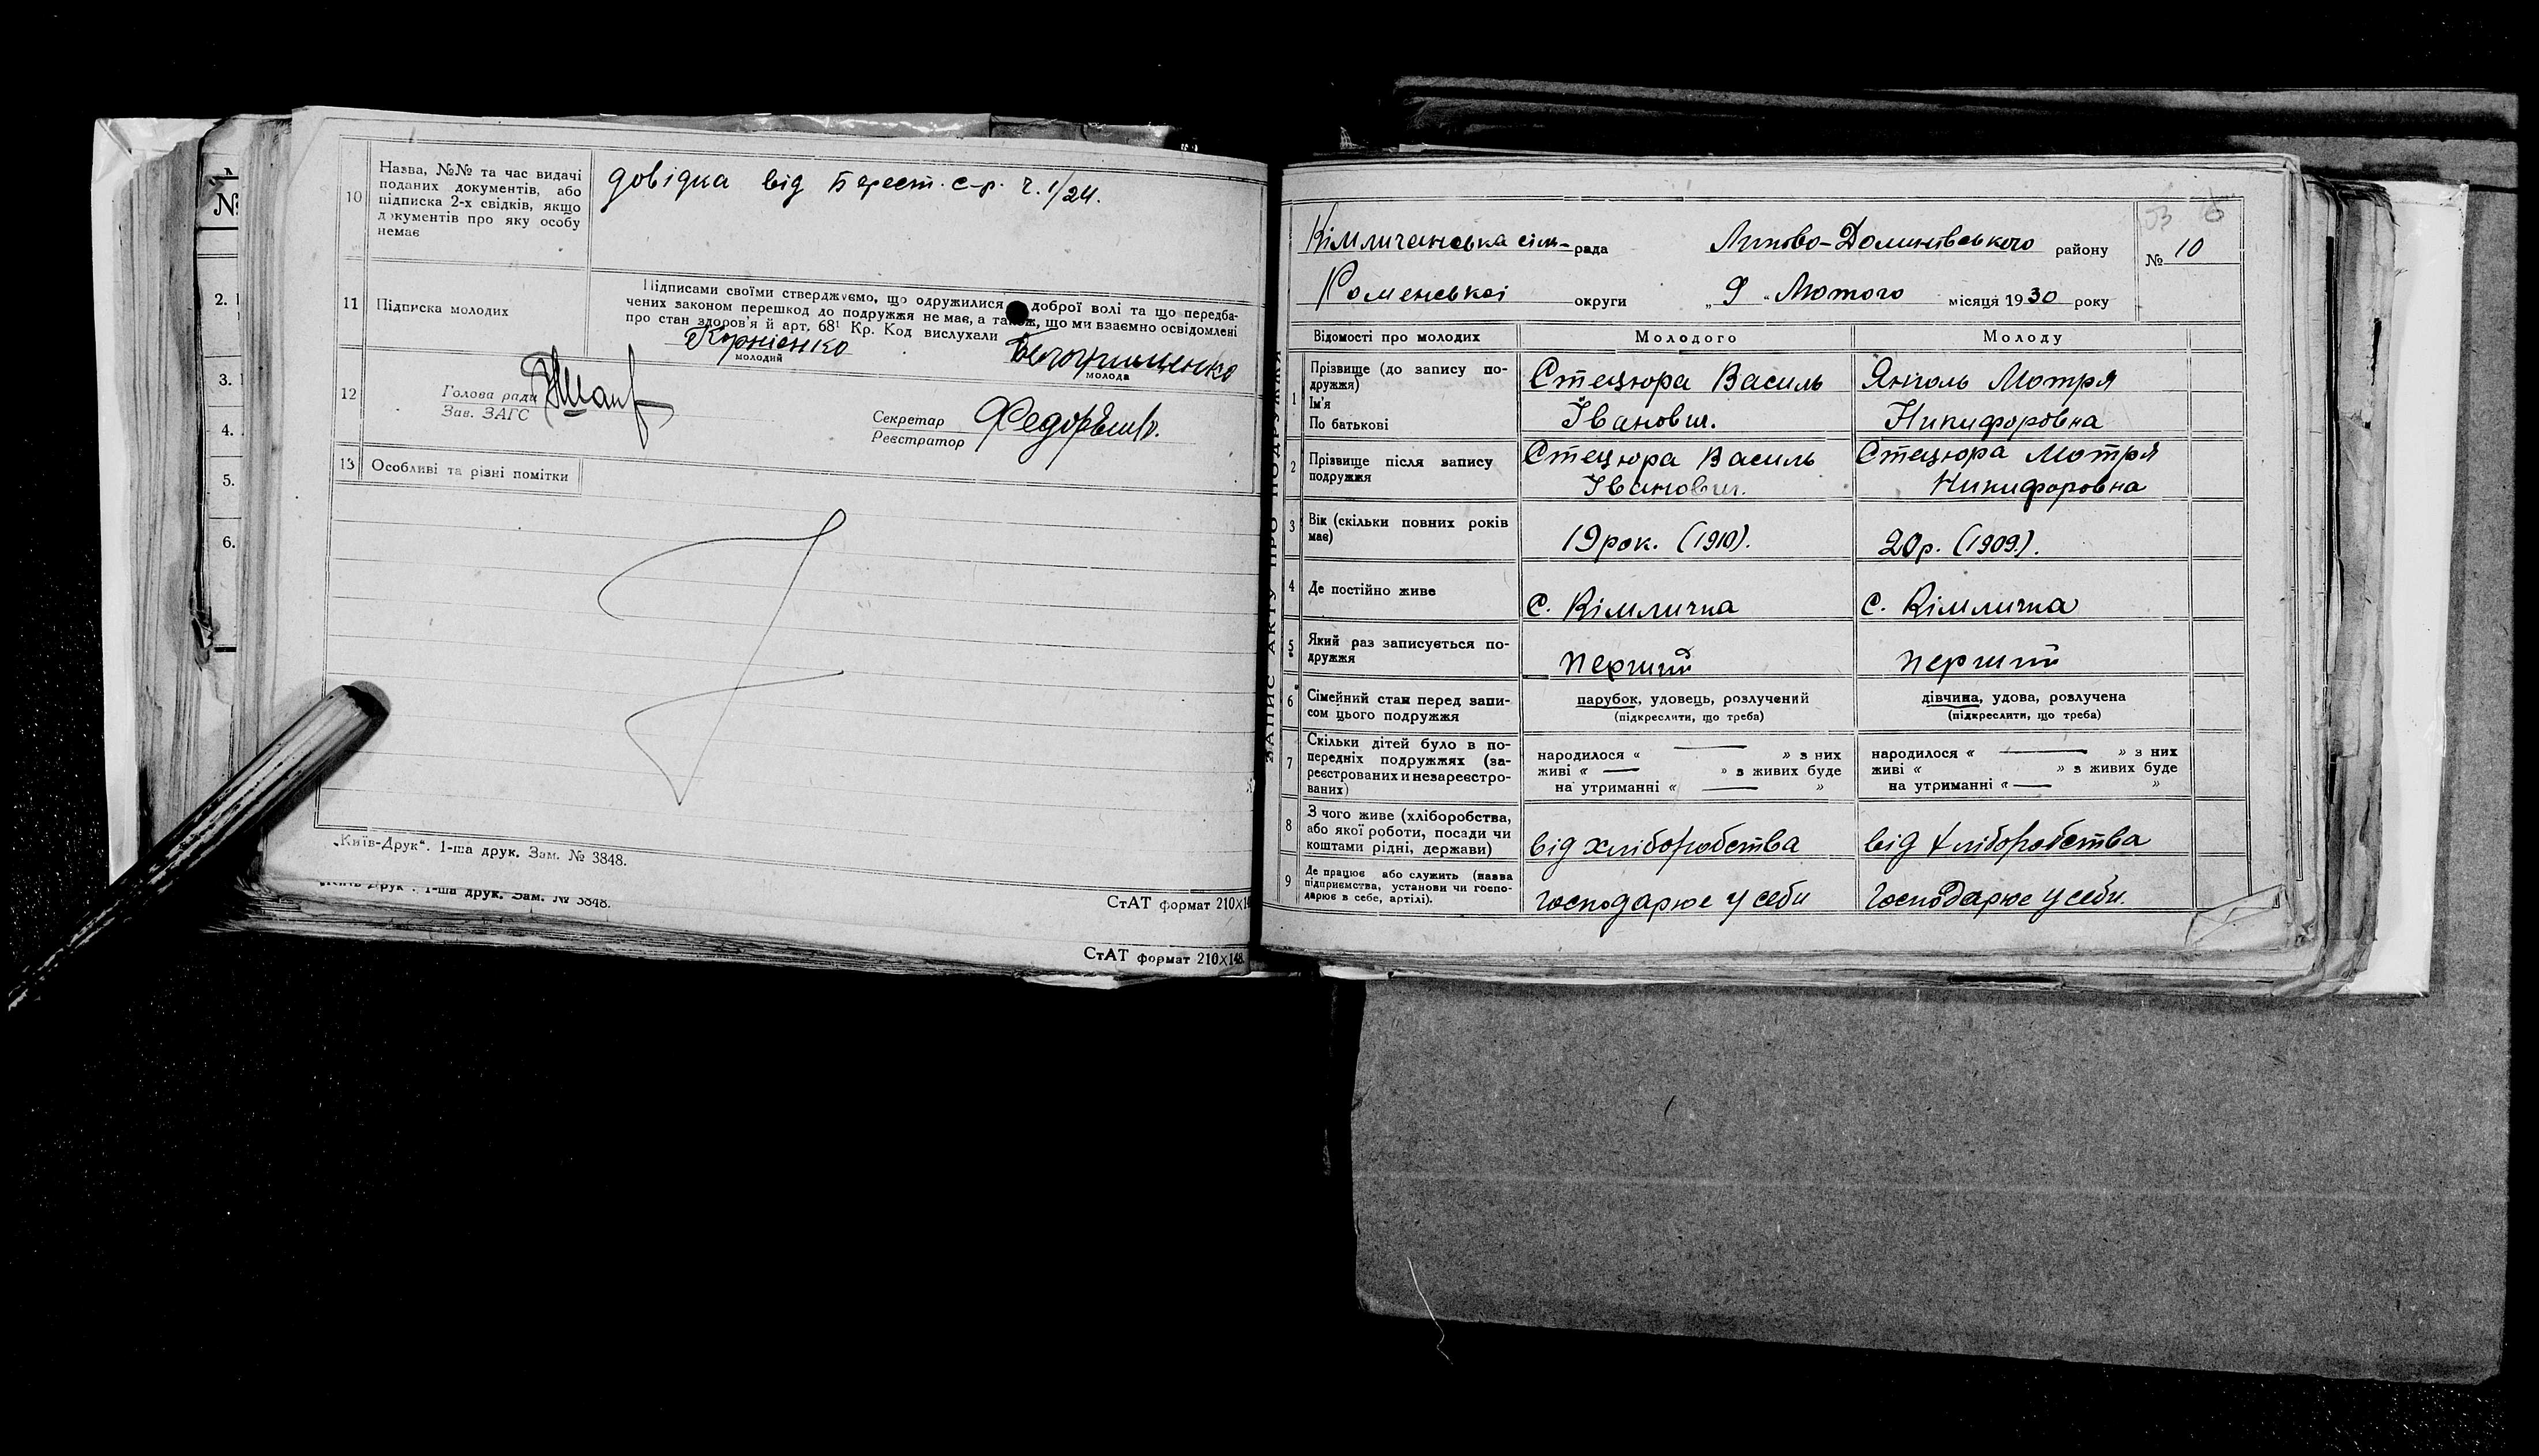 10
Назва, №№ та час видачі
поданих документів, або
підписка 2-х свідків, якщо
документів про яку особу
немає
довідка від Берест. с-р. ч. 1/24.
11 Підписка молодих
Підписами своїми стверджуємо, що одружилися доброї волі та що передба-
чених законом перешкод до подружжя не має, а також, що ми взаємно освідомлені
про стан здоров'я й арт. 68¹ Кр. Код вислухали
Корнієнко
молодий
молода
12
Голова ради
Зав. ЗАГС
Секретар
Реєстратор
13 Особливі та різні помітки
„Київ-Друк“. 1-ша друк. Зам. № 3848.
1-ша друк. Зам. № 3848.
СтАТ формат 210×14
СтАТ формат 210×148.
№
2.
3.
4.
5.
6.
ЗАПИС АКТУ ПРО ПОДРУЖЖЯ
Кімличанська сіль-рада Липово-Долинського району
№ 10
Роменської округи „9“ Лютого місяця 1930 року
Відомості про молодих Молодого Молоду
1
Прізвище (до запису по-
дружжя)
Ім'я
По батькові
Стецюра Василь
Іванович.
Янголь Мотря
Никифоровна
2
Прізвище після запису
подружжя
Стецюра Василь
Іванович.
Стецюра Мотря
Никифоровна
3
Вік (скільки повних років
має)
19 рок. (1910).
20 р. (1909.).
4 Де постійно живе
с. Кімличка
с. Кімличка
5
Який раз записується по-
дружжя
перший
перший
6
Сімейний стан перед запи-
сом цього подружжя
парубок, удовець, розлучений
(підкреслити, що треба)
дівчина, удова, розлучена
(підкреслити, що треба)
7
Скільки дітей було в по-
передніх подружжях (за-
реєстрованих и незареєстро-
ваних)
народилося « — » з них
живі « — » з живих буде
на утриманні « — »
народилося « — » з них
живі « » з живих буде
на утриманні « — »
8
З чого живе (хліборобства,
або якої роботи, посади чи
коштами рідні, держави)
від хліборобства
від хліборобства
9
Де працює або служить (назва
підприємства, установи чи госпо-
дарює в себе, артілі).
господарює у себи
господарює у себи.